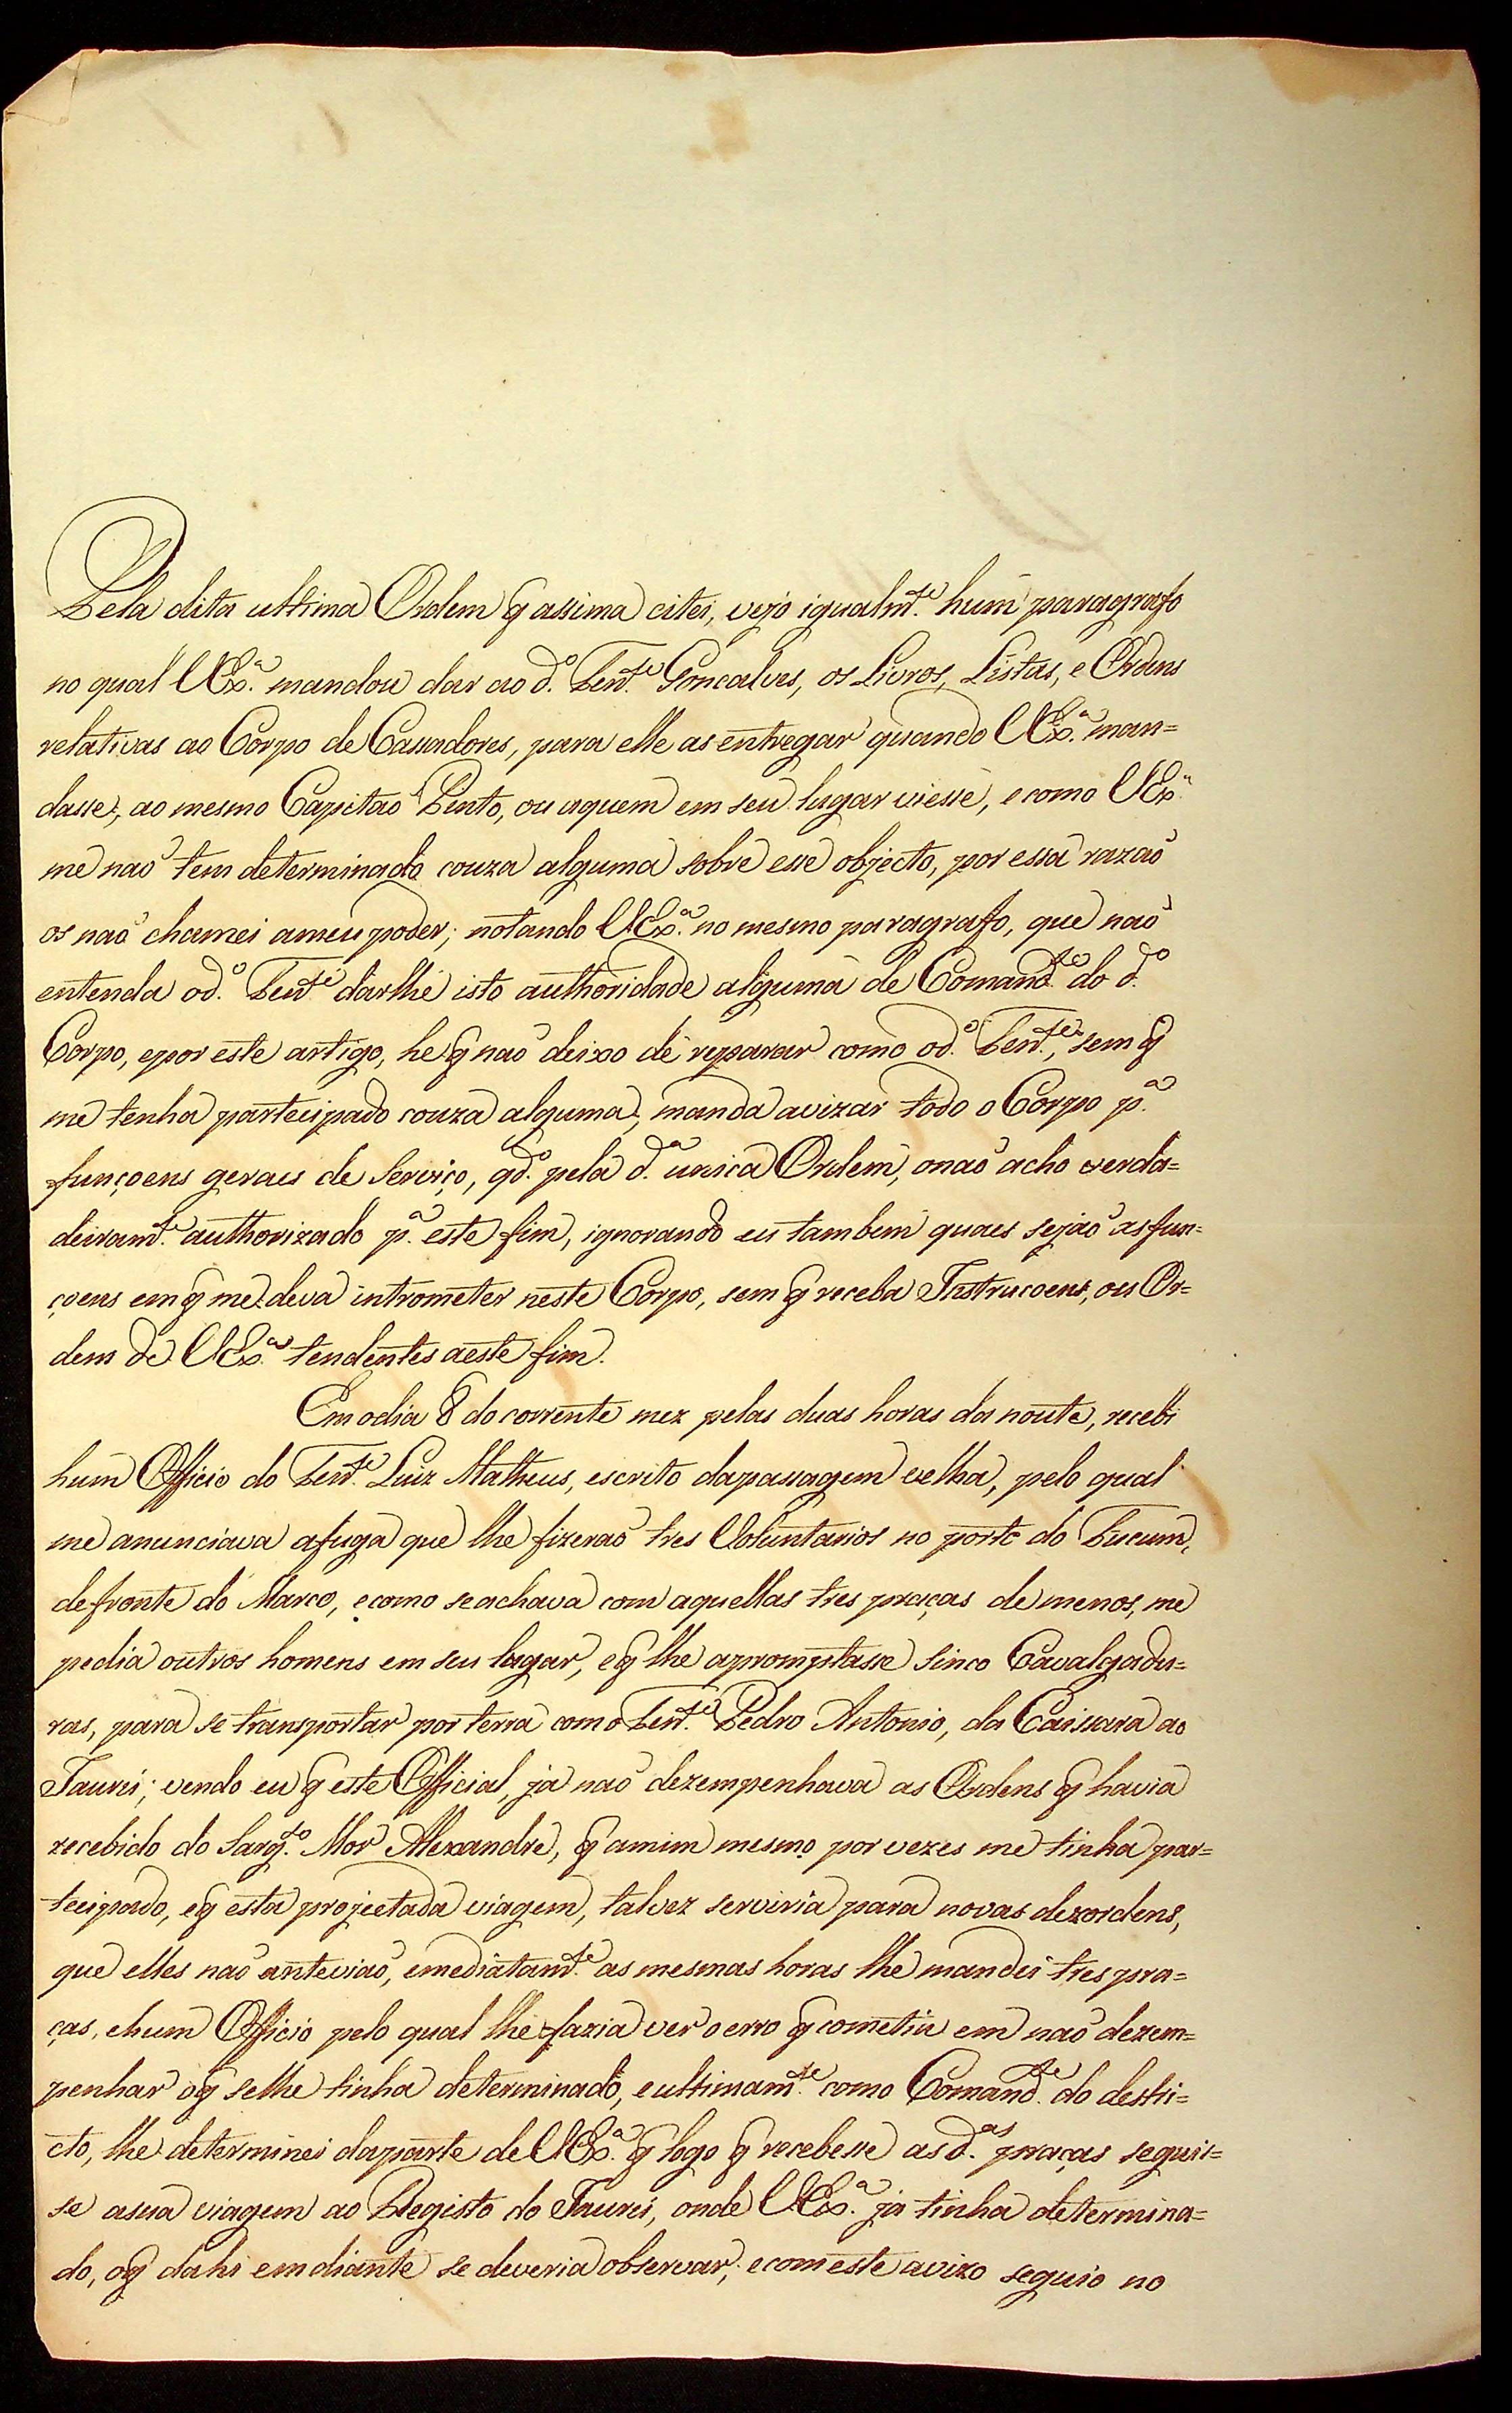 Pela dita ultima Ordem q̃ assima citei, vejo igualm.te hum paragrafo
no qual V.Ex.a mandou dar ao d.o Ten.te Goncalves, os Livros, Listas, e Ordens
relativas ao Corpo de Cassadores, para elle as entregar quando V.Ex.a man=
dasse, ao mesmo Capitao Pinto, ou aquem em seu lugar viesse, e como V.Ex.a
me naõ tem determinado couza alguma sobre esse objecto, por essa razaõ
os naõ chamei ameu poder; notando V.Ex.a no mesmo paragrafo, que naõ
entenda o d.o Ten.te darlhe isto authoridade alguma de Comand.te do d.o
Corpo, epor este artigo, he q̃ naõ deixo de reparar como o d.o Ten.te, sem q̃
me tenha partecipado couza alguma, manda avizar todo o Corpo p.a
funçoens geraes de Serviço, qd.o pela d.a unica Ordem, onaõ acho verda=
deiram.te authorizado p.a este fim, ignorando eu tambem quaes sejaõ as fun=
çoens em q̃ me deva intrometer neste Corpo, sem q̃ receba Instrucoens, ou Or=
dem de V.Ex.a tendentes aeste fim.
Em odia 8 do corrente mez pelas duas horas da noute, recebi
hum Officio do Ten.te Luiz Matheus, escrito dapassagem velha, pelo qual
me anunciava afuga que lhe fizeraõ tres Voluntarios no porto do Tucum,
defronte do Marco, ecomo seachava com aquellas tres praças de menos, me
pedia outros homens em seu lugar, eq̃ lhe apromptasse sinco Cavalgadu=
ras, para se transportar por terra como Ten.te Pedro Antonio, da Caissara ao
Jaurú; vendo eu q̃ este Official, ja naõ dezempenhava as Ordens q̃ havia
recebido do Sarg.to Mor Alexandre, q̃ amim mesmo por vezes me tinha par=
tecipado, eq̃ esta projectada viagem, talvez serviria para novas dezordens,
que elles naõ anteviaõ, emediatam.te as mesmas horas lhe mandei tres pra=
ças, ehum Officio pelo qual lhe fazia ver o erro q̃ cometia em naõ dezem=
penhar oq̃ selhe tinha determinado, eultimam.te como Comand.te do destri=
cto, lhe determinei daparte de V.Ex.a q̃ logo q̃ recebesse as d.as praças seguis=
se asua viagem ao Registo do Jaurú, onde V.Ex.a ja tinha determina=
do, oq̃ dahi emdiante se deveria observar; ecom este avizo seguio no